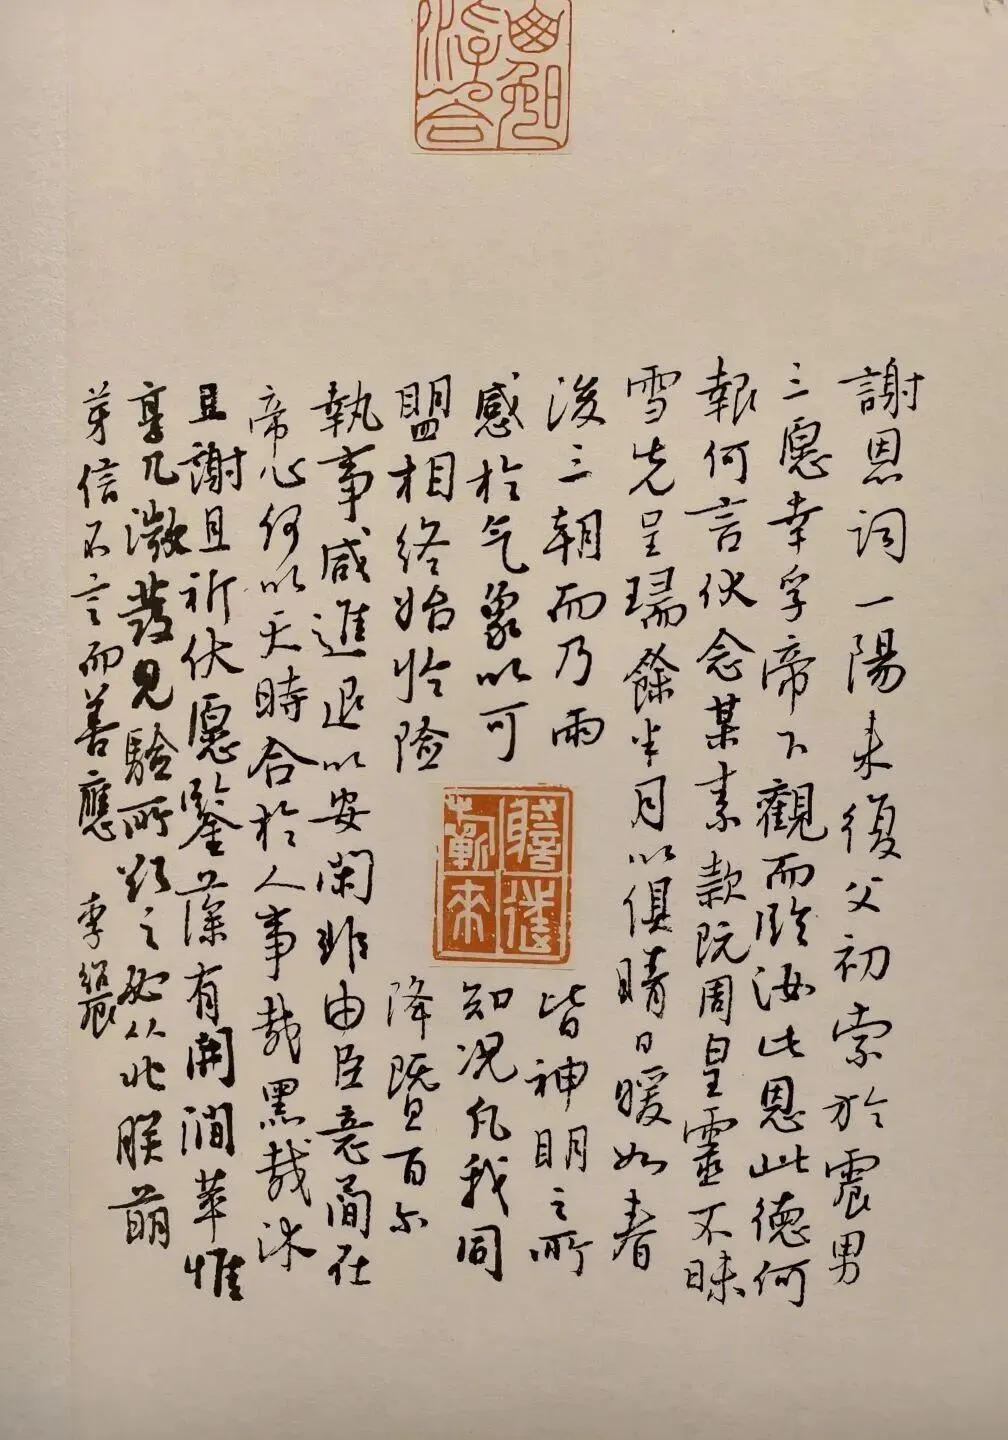 謝恩詞一陽来復父初索於震男
三愿幸孚帝下觀而臨汝此恩此德何
報何言伏念某素款阮周皇靈不昧
雪先呈瑞餘半月以俱晴日暖如春
後三朝而乃雨皆神明之所
感於气象以可知况凡我同
盟相終始怜險降既百尔
執事咸進退以安闲非由臣意簡在
帝心何以天時合於人事哉黑哉沐
且謝且祈伏愿鑒藻有開澗苹惟
享几微發見驗所以之必從北朕萌
芽信不言而善應 李